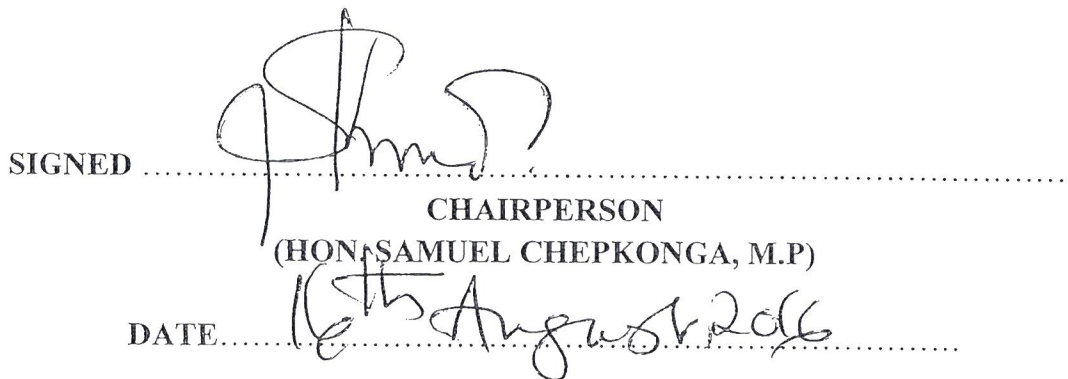 SIGNED ........................................................................
CHAIRPERSON
(HON. SAMUEL CHEPKONGA, M.P)
DATE 16th August 2016